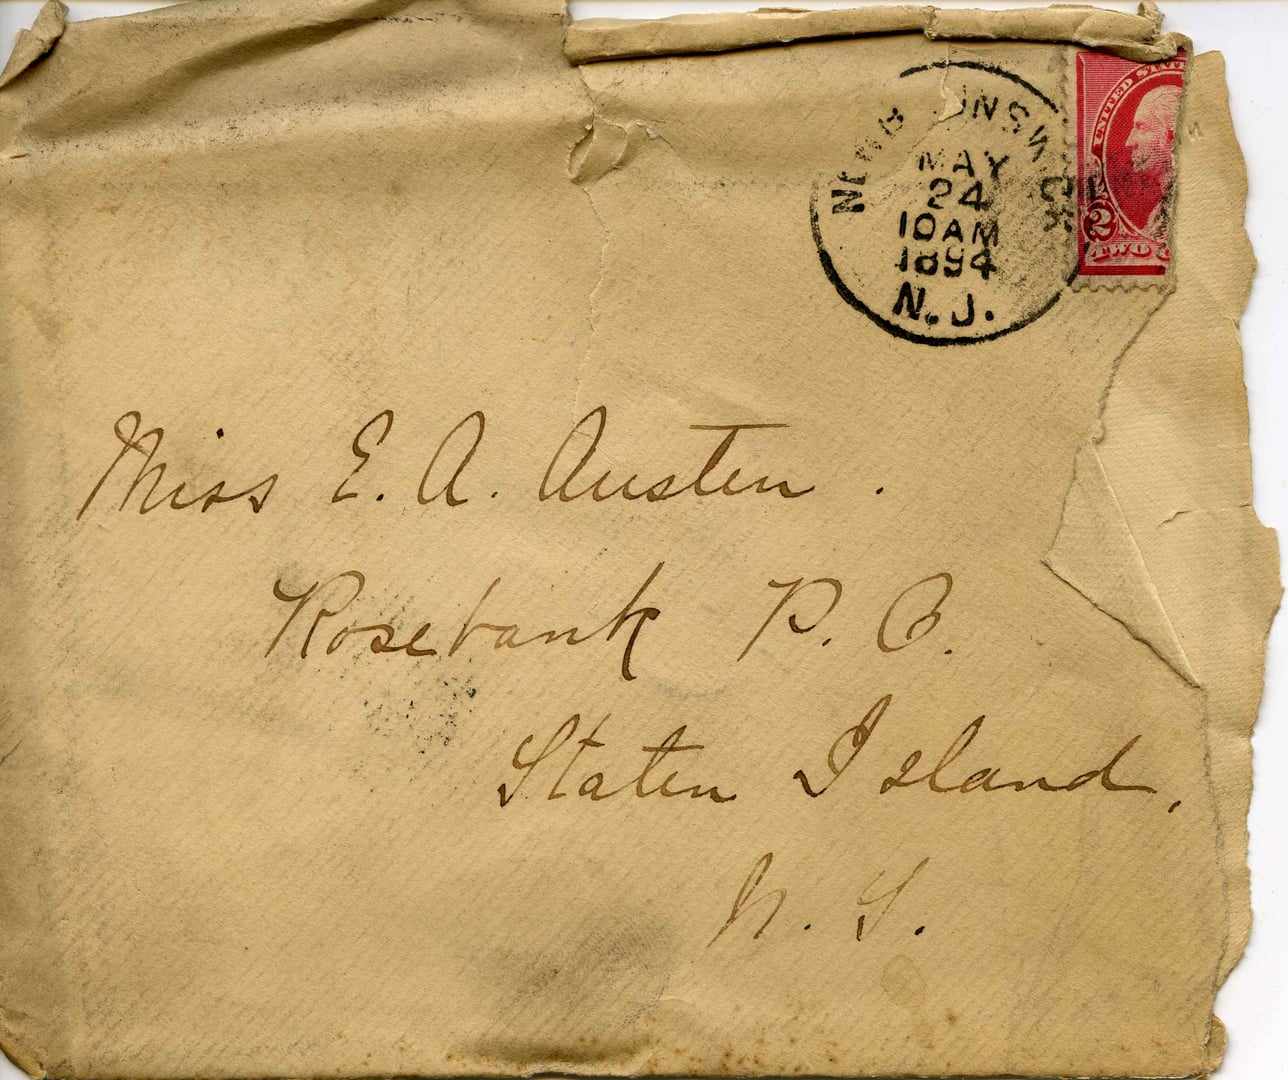 NEW B UNSW CK
MAY
24
10 AM
1894
N.J.
UNITED STATE
2
TWO
Miss E. A. Austen.
Rosebank P. O.
Staten Island,
N. Y.